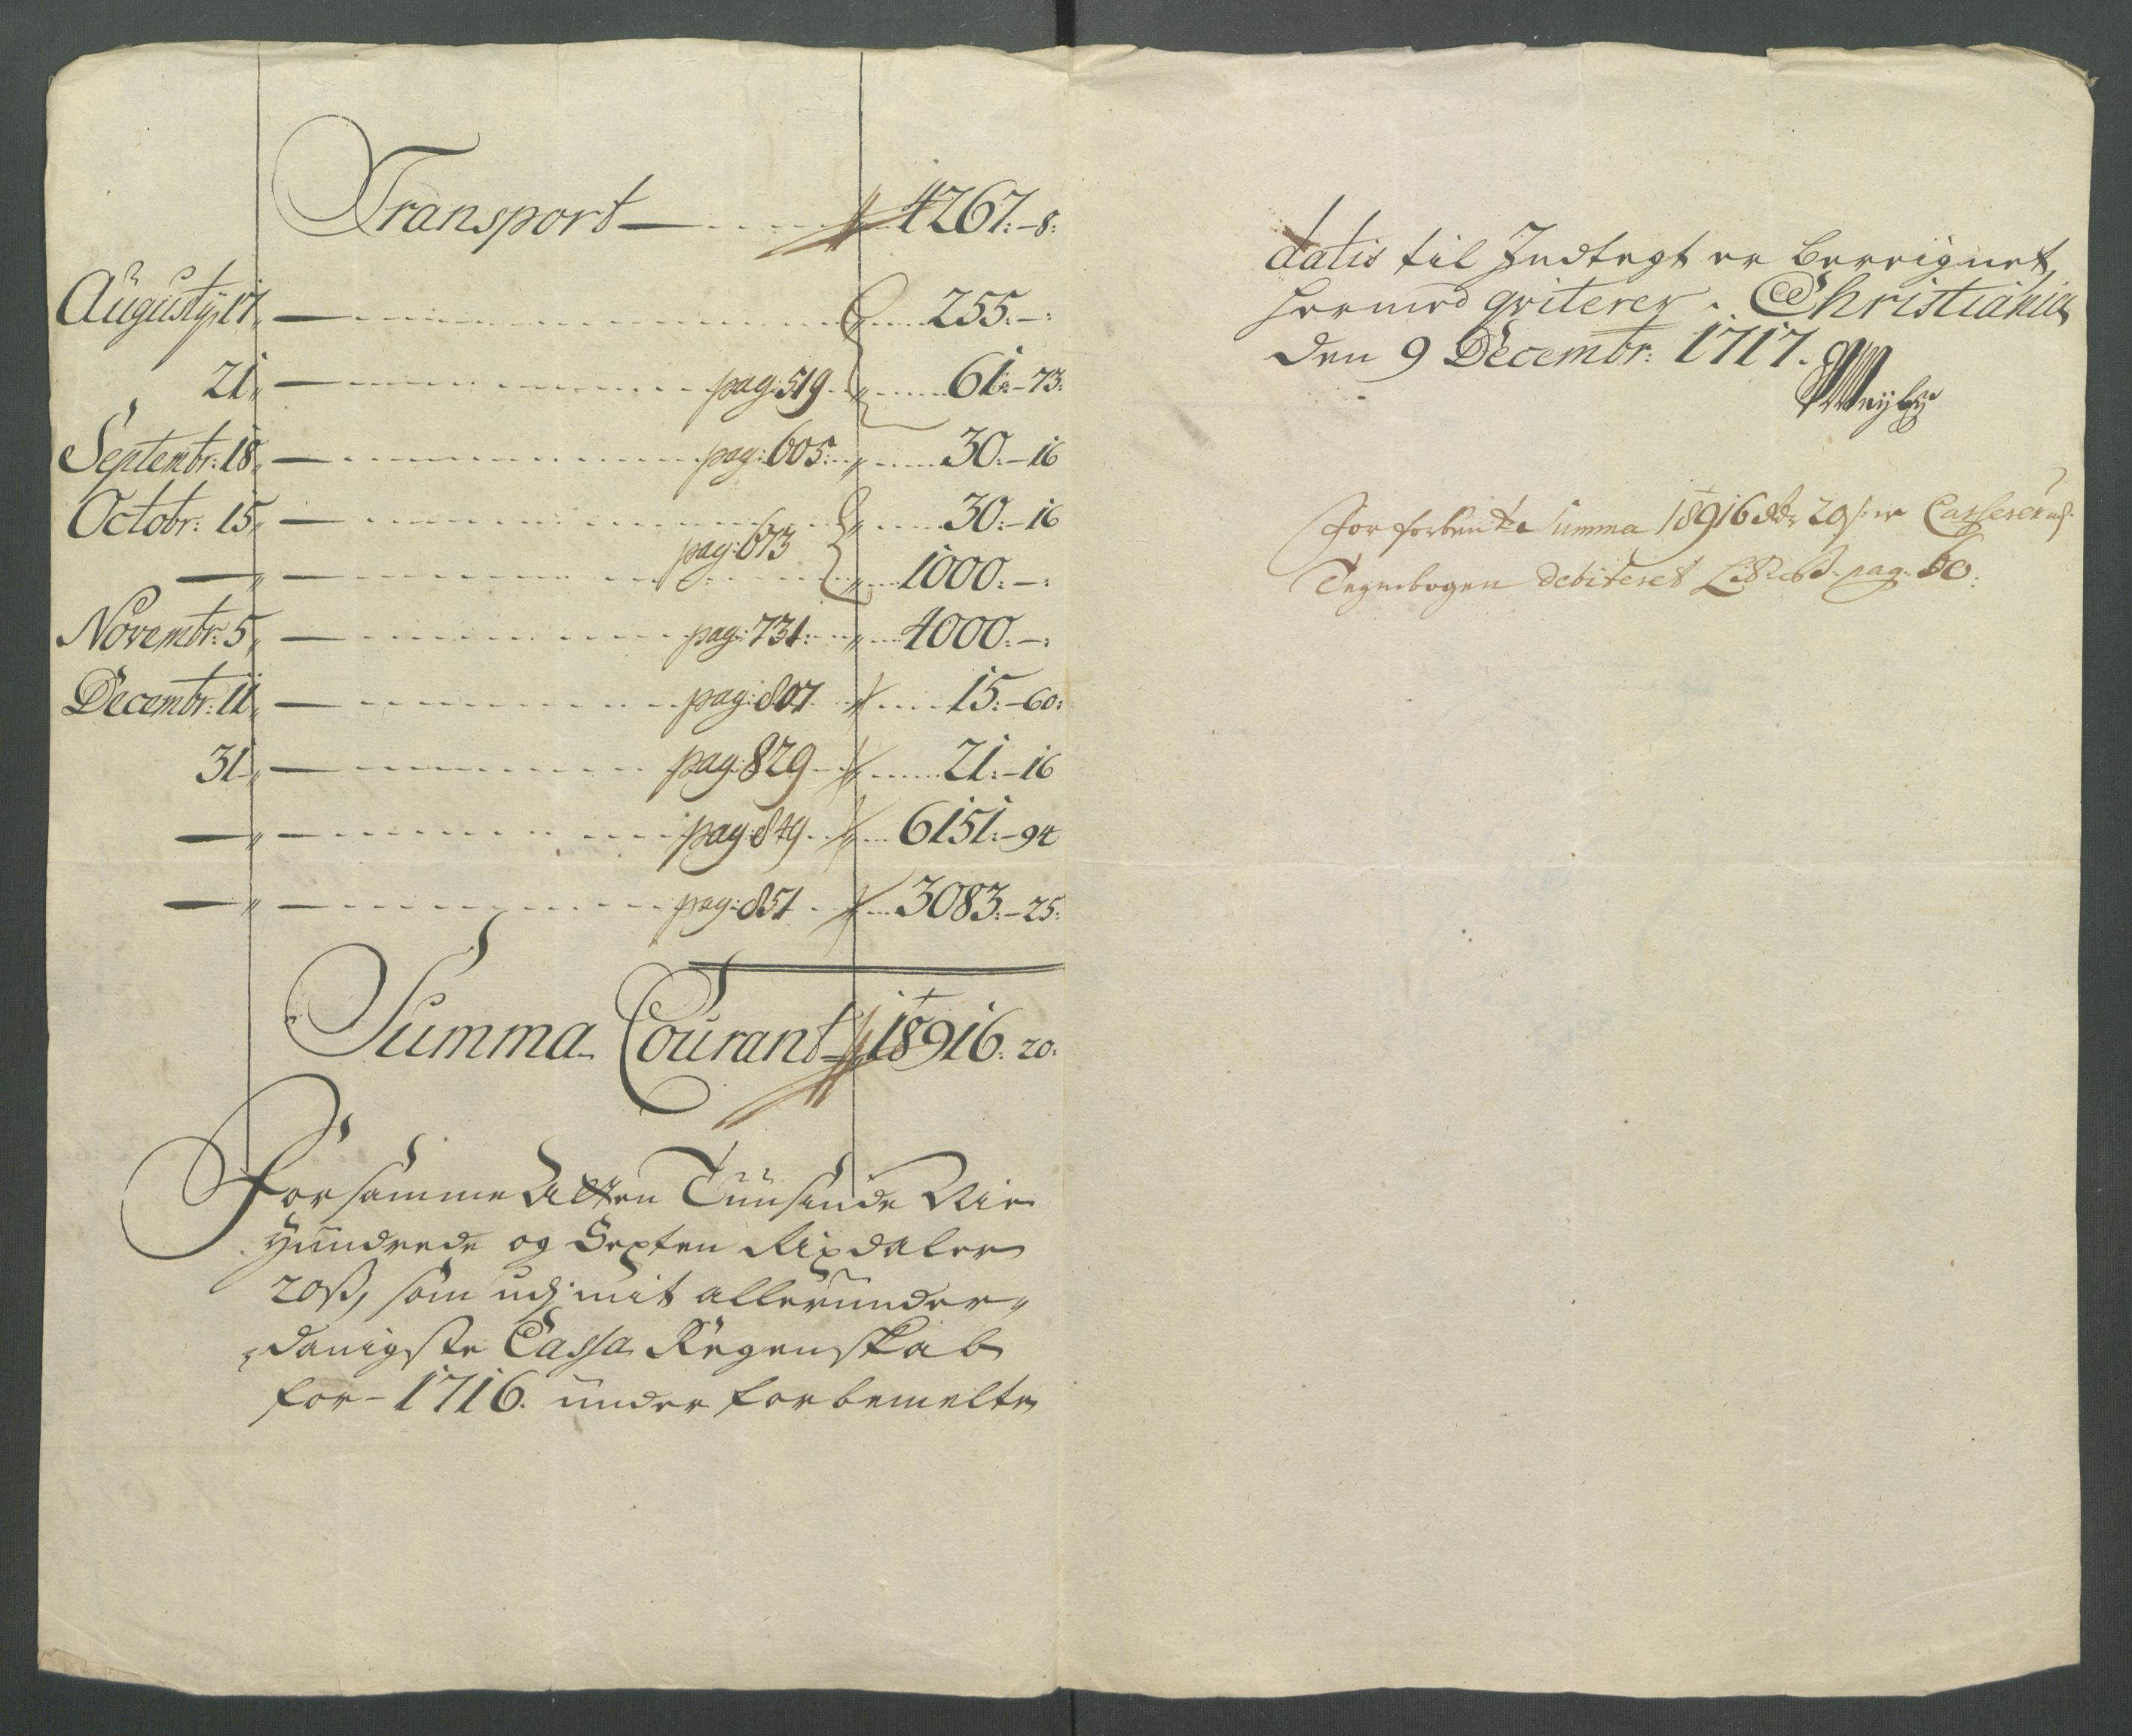 Transport 4267: 8:
Augustij 17 255: -:
21 pag: 519 61: 73:
Septembr: 18 pag: 605: 30: 16
Octobr: 15 30: 16
pag: 673 1000: -:
Novembr: 5 pag: 731: 4000: -:
Decembr: 11 pag: 807 15: 60:
31 pag: 829 21: 16
pag: 849 6151: 94
pag: 851 3083: 25:
Summa Courant 18916: 20:
For samme Atten Tüusinde Nie
Hundrede og Sexten Rixdaler
20 ß, som udj mit allerunder„
„danigste Cassa Regenskab
for 1716. under forbemelte
datis til Indtegt er bereignet,
hermed qviterer. Christiania
den 9 Decembr: 1717.
Summa 18916 Rdr 20 ß: er Casserer
Tegnebogen debiteret pag: 60: